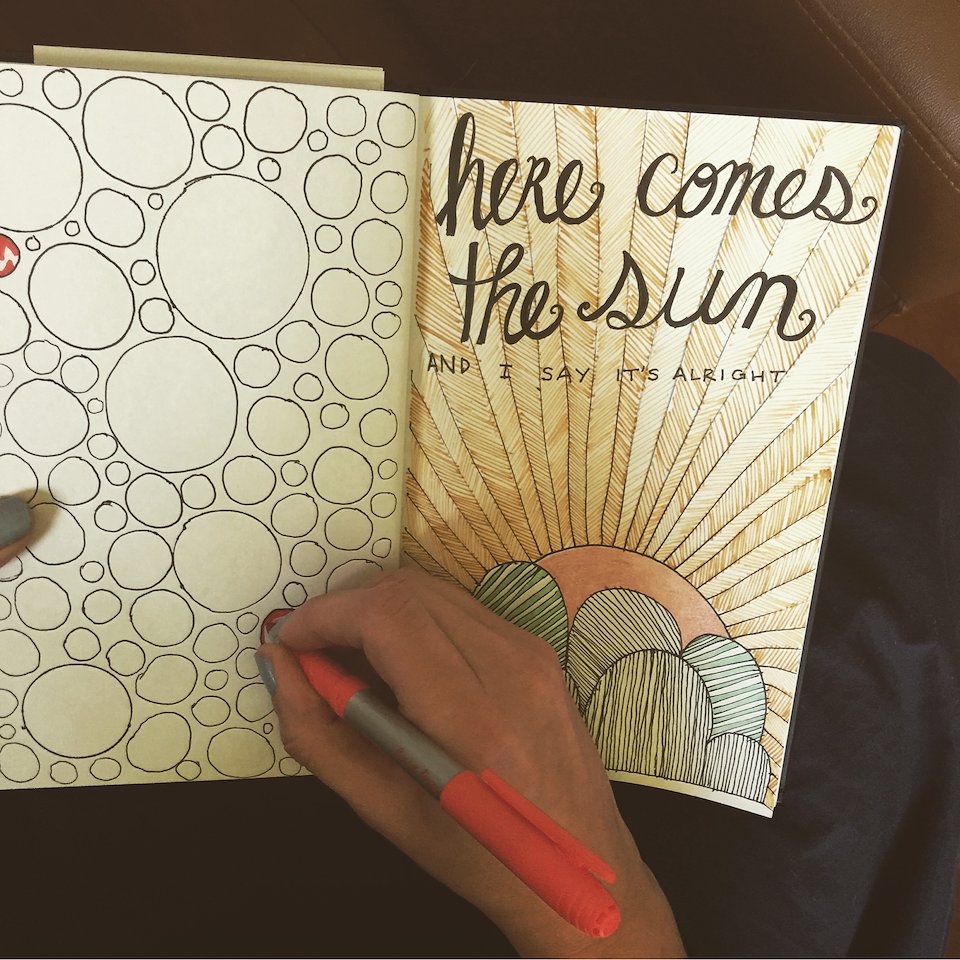 here comes
the sun
AND I SAY IT'S ALRIGHT